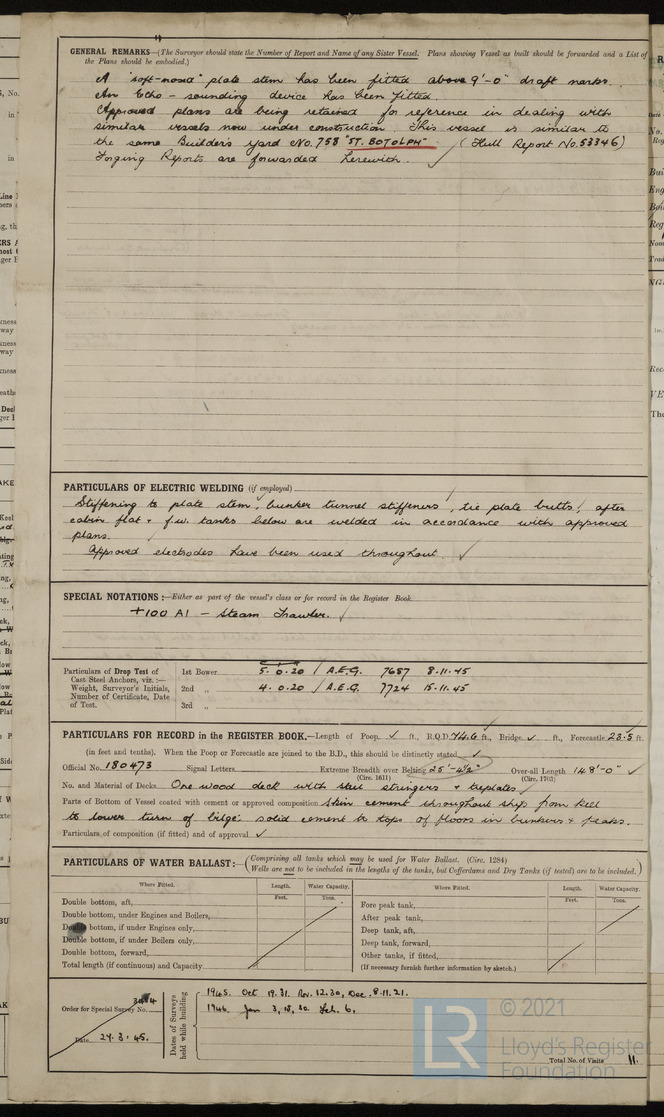 GENERAL REMARKS—(The Surveyor should state the Number of Report and Name of any Sister Vessel. Plans showing Vessel as built should be forwarded and a List of
the Plans should be embodied.)
A "soft-nosed" plate stem has been fitted above 9'-0" draft marks.
An Echo-sounding device has been fitted.
Approved plans are being retained for reference in dealing with
similar vessels now under construction This vessel is similar to
the same Builder's yard No. 758 "ST. BOTOLPH" (Hull Report No. 53346)
Forging Reports are forwarded herewith.
PARTICULARS OF ELECTRIC WELDING (if employed)
Stiffening to plate stem, bunker tunnel stiffeners, tie plate butts, after
cabin flat + f.w. tanks below are welded in accordance with approved
plans.
Approved electrodes have been used throughout.
SPECIAL NOTATIONS:—Either as part of the vessel's class or for record in the Register Book.
+100 A1 — Steam Trawler.
Particulars of Drop Test of
Cast Steel Anchors, viz.:—
Weight, Surveyor's Initials,
Number of Certificate, Date
of Test.
1st Bower 5.0.20 / A.E.G. 7687 8.11.45
2nd „ 4.0.20 / A.E.G. 7724 15.11.45
3rd „
PARTICULARS FOR RECORD in the REGISTER BOOK.—Length of Poop ft., R.Q.D. 74.6 ft., Bridge ft., Forecastle 23.5 ft.
(in feet and tenths). When the Poop or Forecastle are joined to the B.D., this should be distinctly stated
Official No. 180473 Signal Letters Extreme Breadth over Belting 25'-4½" Over-all Length 148'-0"
(Circ. 1611) (Circ. 1703)
No. and Material of Decks One wood deck with steel stringers + tieplates
Parts of Bottom of Vessel coated with cement or approved composition Skin cement throughout ship from keel
to lower turn of bilge: solid cement to tops of floors in bunkers + peaks.
Particulars of composition (if fitted) and of approval
PARTICULARS OF WATER BALLAST:—(Comprising all tanks which may be used for Water Ballast. (Circ. 1284)
Wells are not to be included in the lengths of the tanks, but Cofferdams and Dry Tanks (if tested) are to be included.)
Where Fitted. Length. Water Capacity. Where Fitted. Length. Water Capacity.
Feet. Tons. Feet. Tons.
Double bottom, aft,
Double bottom, under Engines and Boilers,
Double bottom, if under Engines only,
Double bottom, if under Boilers only,
Double bottom, forward,
Total length (if continuous) and Capacity
Fore peak tank,
After peak tank,
Deep tank, aft,
Deep tank, forward,
Other tanks, if fitted,
(If necessary furnish further information by sketch.)
Order for Special Survey No.
Date 24.3.45.
Dates of Surveys
held while building
1945. Oct 19.31. Nov. 12.30, Dec. 8.11.21.
1946. Jan 3, 18, 30. Feb. 6.
Total No. of Visits 11.
© 2021
LR
Lloyd's Register
Foundation